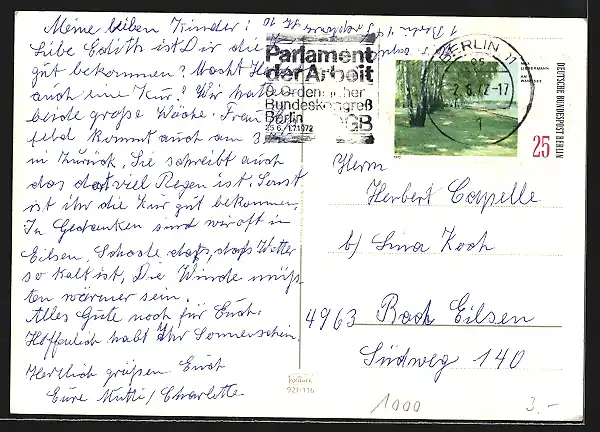 Meine lieben Kinder!
Liebe Edith ist Dir die
gut bekommen? Macht
auch eine Kur? Wir hatten
beide große Wäsche. Frau
feld kommt auch am 3.
in Zurück. Sie schreibt auch
das dort viel Regen ist. Sonst
ist ihr die Kur gut bekommen.
In Gedanken sind wir oft in
Eilsen. Schade, daß, das Wetter
so kalt ist, Die Winde müß-
ten wärmer sein.
Alles Gute noch für Euch.
Hoffentlich habt Ihr Sonnenschein.
Herzlich grüßen Euch
Eure Mutti / Charlotte
1 Berlin
Parlament
der Arbeit
9. Ordentlicher
Bundeskongreß
Berlin
25.6./1.7.1972 DGB
BERLIN 11
2.6.72-17
LIEBERMANN
WANNSEE
DEUTSCHE BUNDESPOST BERLIN
25
Herrn
Herbert Capelle
b/ Lina Koch
4963 Bad Eilsen
Südweg 140
921-116
1000
3.-